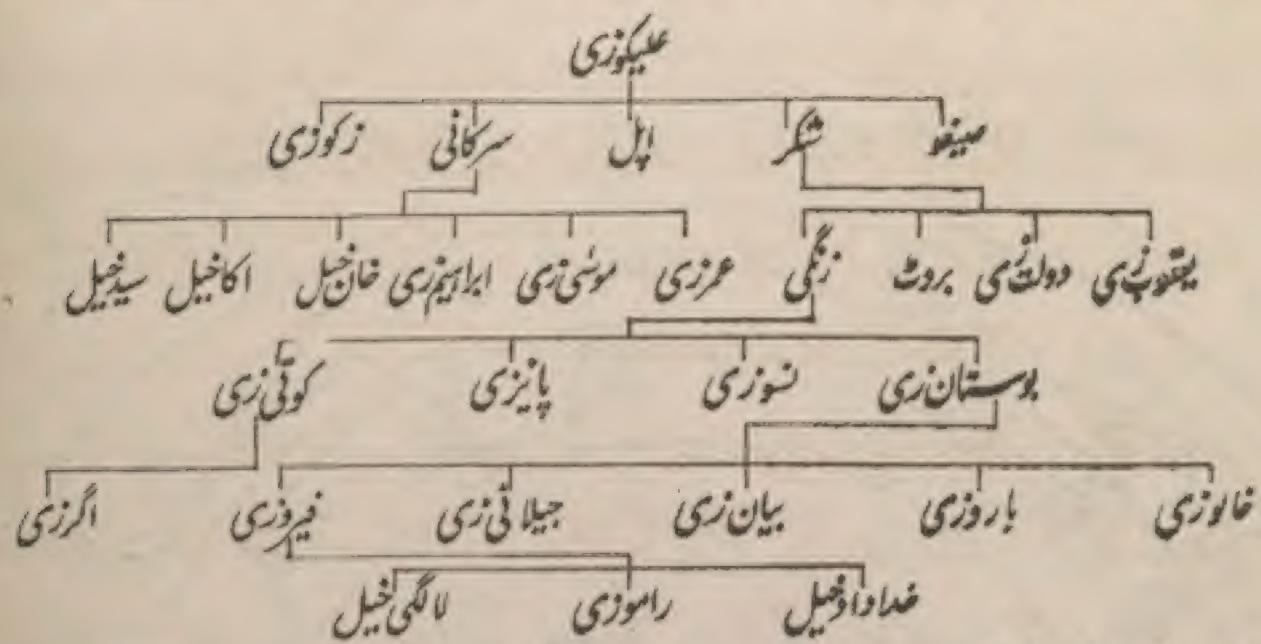 علیکوزی
صیغو شکر اپل سرکانی زکوزی
یعقوب زی دولت زی بروٹ زنگی عمرزی موسٰی زی ابراہیم زی خان خیل اکاخیل سید خیل
بوستان زی نسوزی پانیزی کوٹی زی
خالوزی باروزی بیان زی جیلانی زی فیروزی اگرزی
خداداد خیل راموزی لالگی خیل